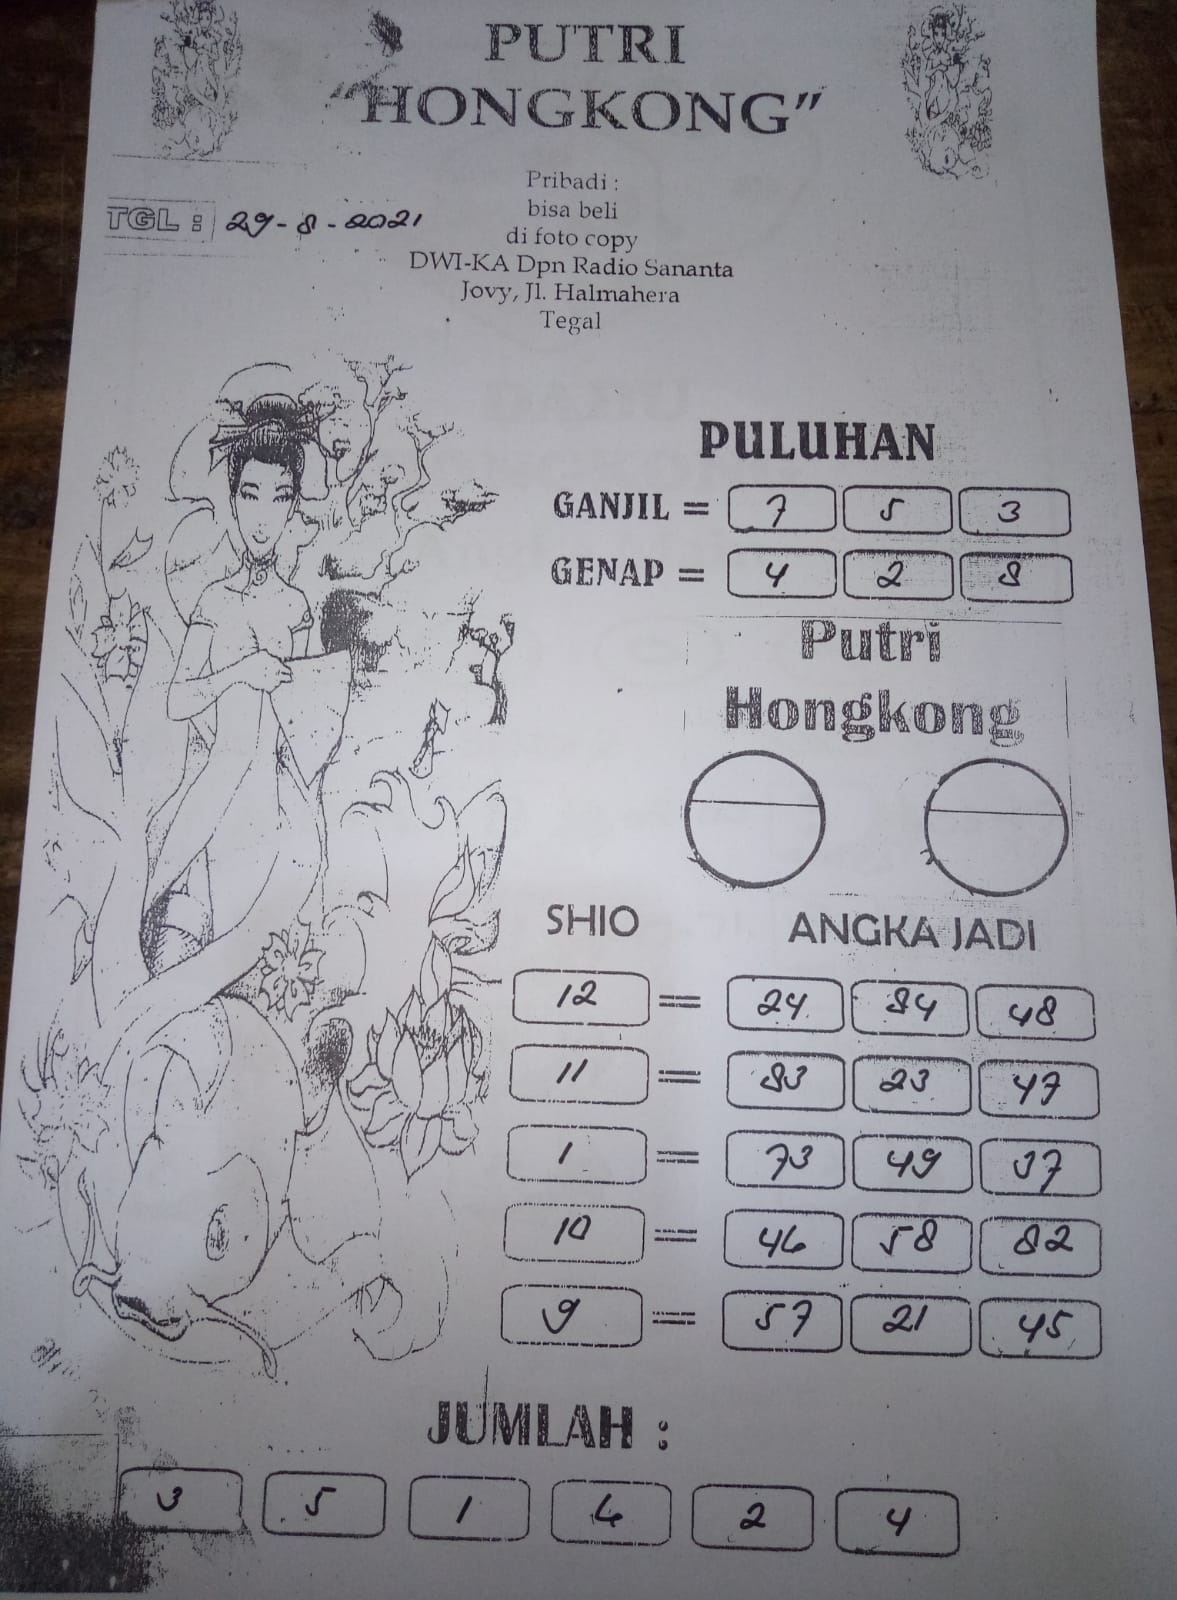 PUTRI
"HONGKONG"
Pribadi :
bisa beli
di foto copy
DWI-KA Dpn Radio Sananta
Jovy, Jl. Halmahera
Tegal
TGL : 29-8-2021
PULUHAN
GANJIL = 7 5 3
GENAP = 4 2 8
Putri
Hongkong
SHIO ANGKA JADI
12 = 24 84 48
11 = 83 23 47
1 = 73 49 37
10 = 46 58 82
9 = 57 21 45
JUMLAH :
3 5 1 6 2 4